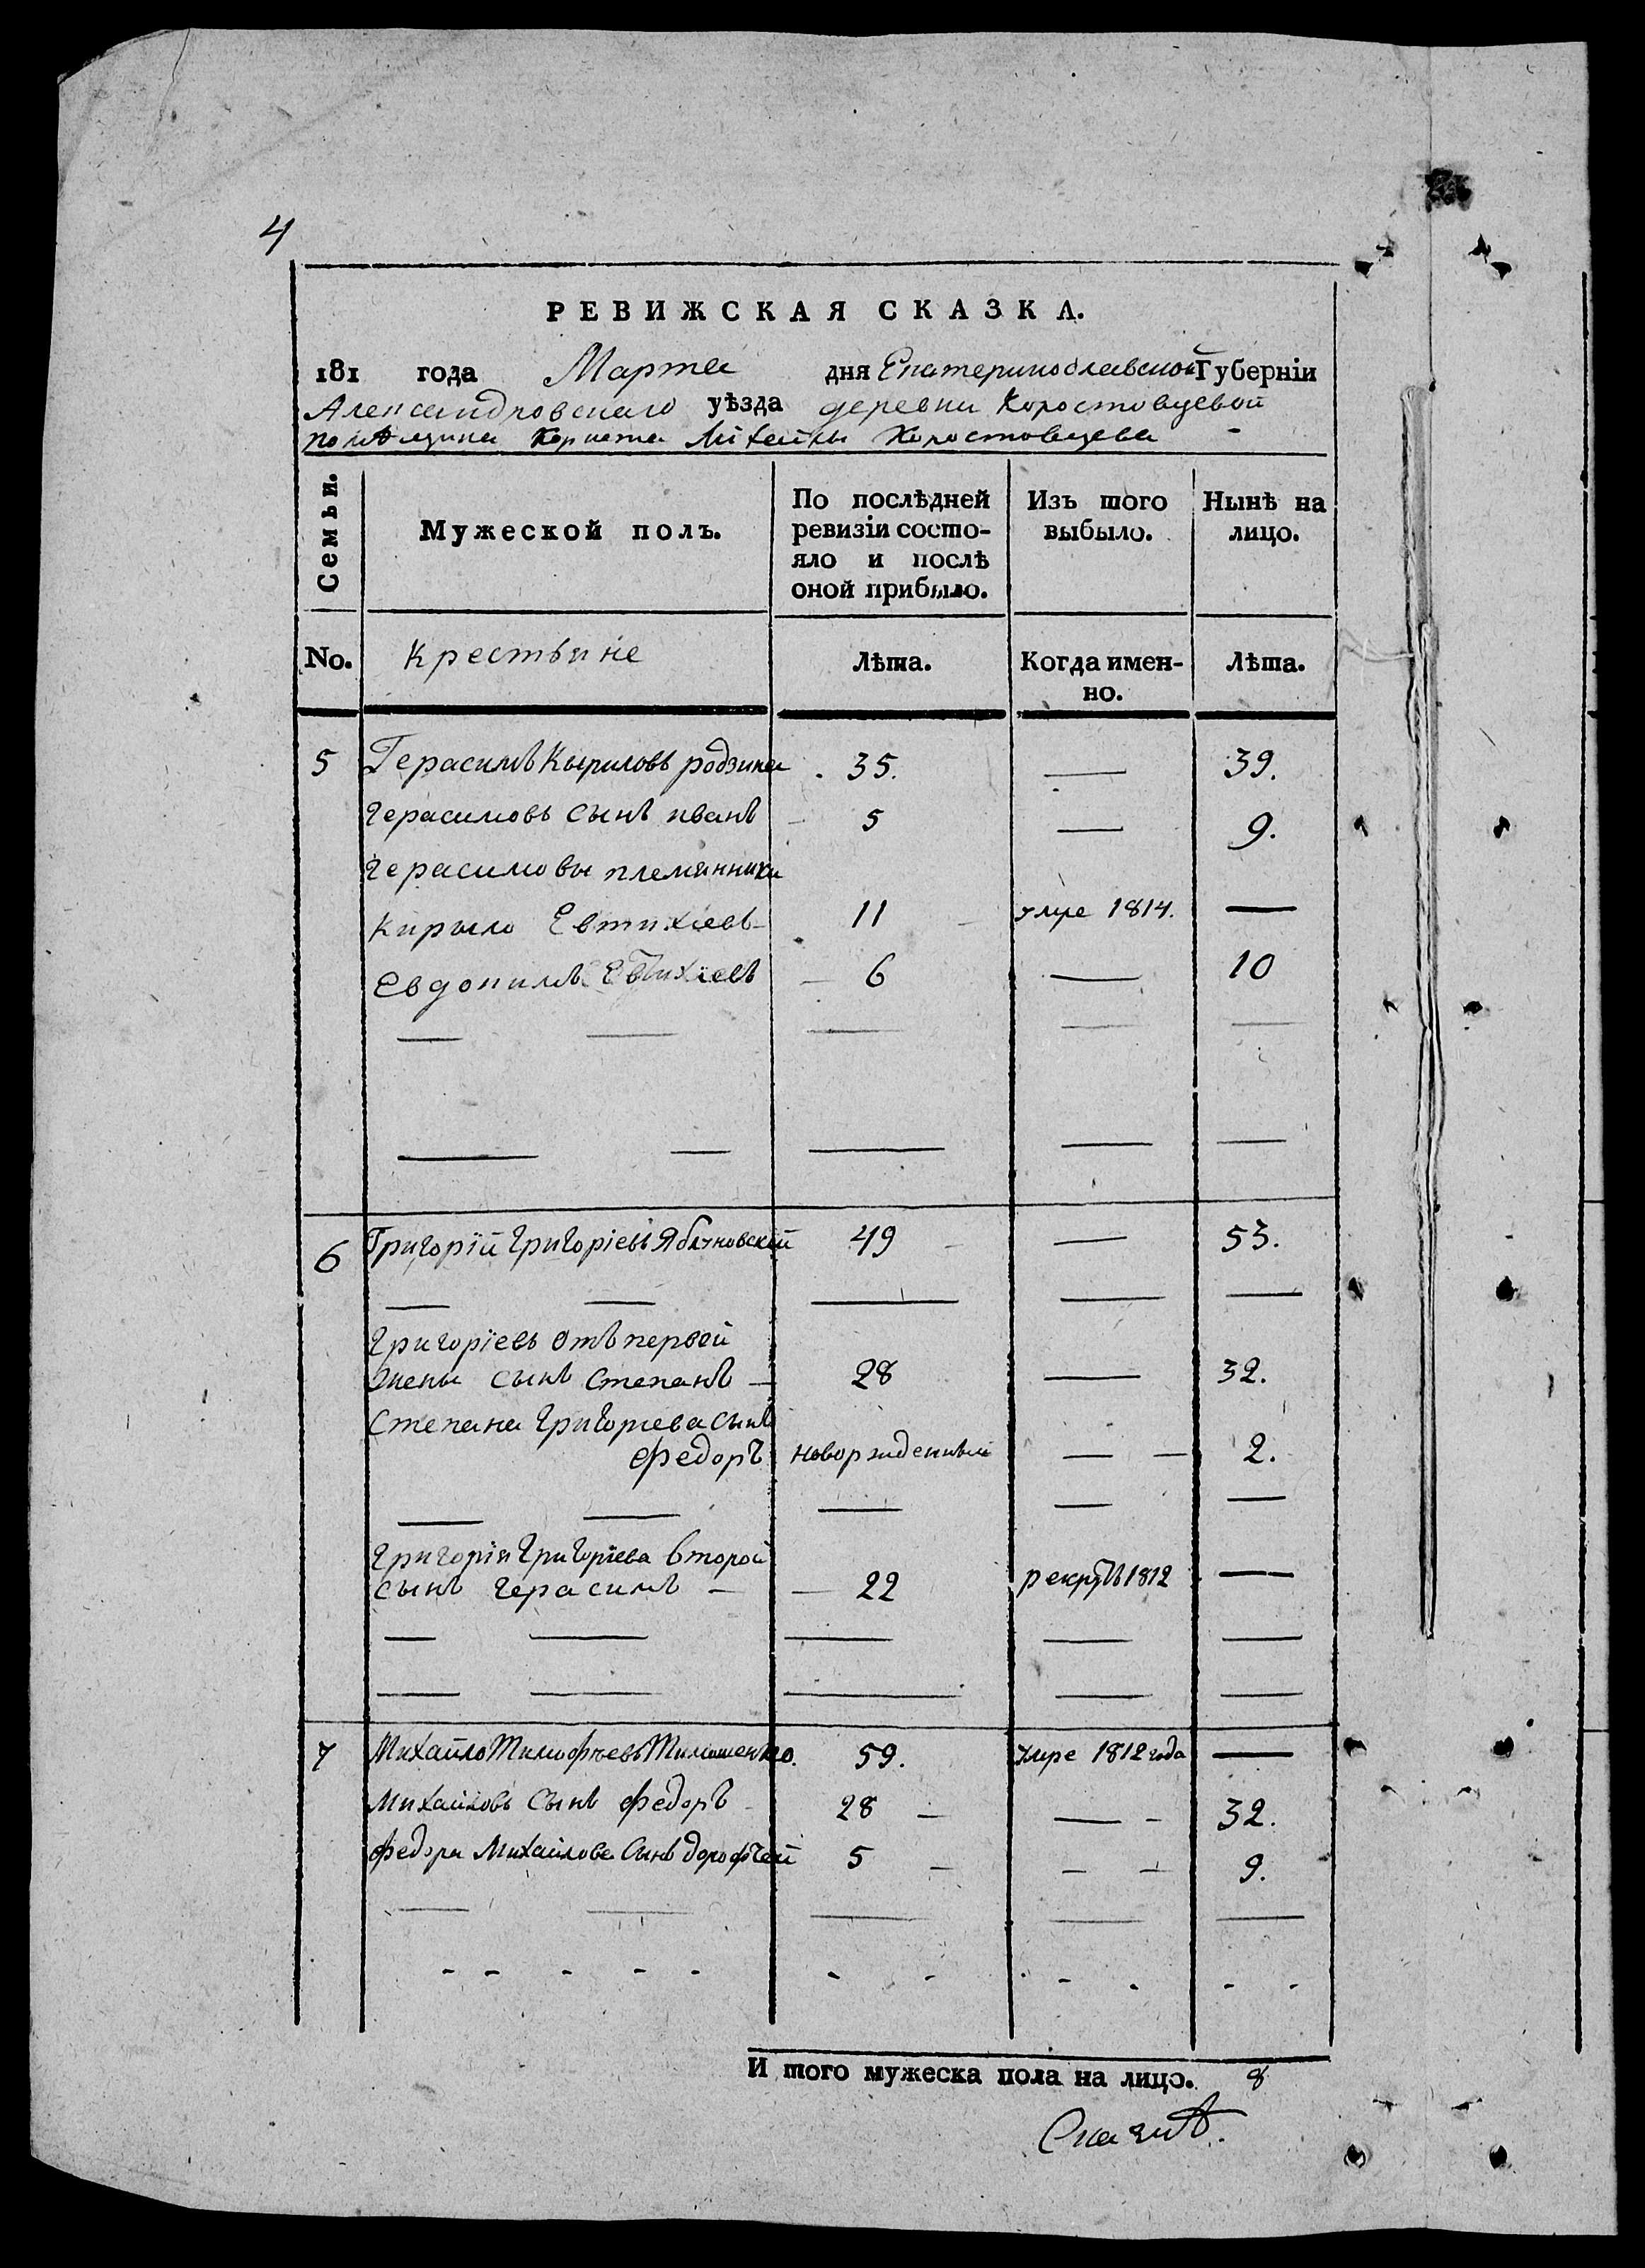 4
РЕВИЖСКАЯ СКАЗКА.
181 года Марта дня Екатеринославской Губерніи
Александровскаго уѣзда деревни Коростовцевой
помѣщика Корнета Михайлы Коростовцева
Семьи. Мужеской полъ. По послѣдней ревизіи состояло и послѣ оной прибыло. Изъ того выбыло. Нынѣ на лицо.
No. Крестьяне Лѣта. Когда именно. Лѣта.
5 Герасимъ Кириловъ родзинка 35. — 39.
Герасимовъ сынъ иванъ 5 — 9.
Герасимовы племянники
Кирыло Евтихіевъ 11 умре 1814. —
Евдокимъ Евтихіевъ 6 — 10
6 Григорій Григоріевъ Яблуновскій 49 — 53.
Григоріевъ отъ первой
жены сынъ Степанъ — 28 — 32.
Степана Григорьева сынъ
Федоръ новорожденный — — 2.
Григорія Григоріева второй
сынъ Герасимъ — 22 рекрутъ 1812 —
7 Михайло Тимофѣевъ Тимошенко. 59. умре 1812 года —
Михайловъ сынъ Федоръ 28 — — 32.
Федора Михайлова сынъ дорофѣй 5 — — 9.
И того мужеска пола на лицо. 8